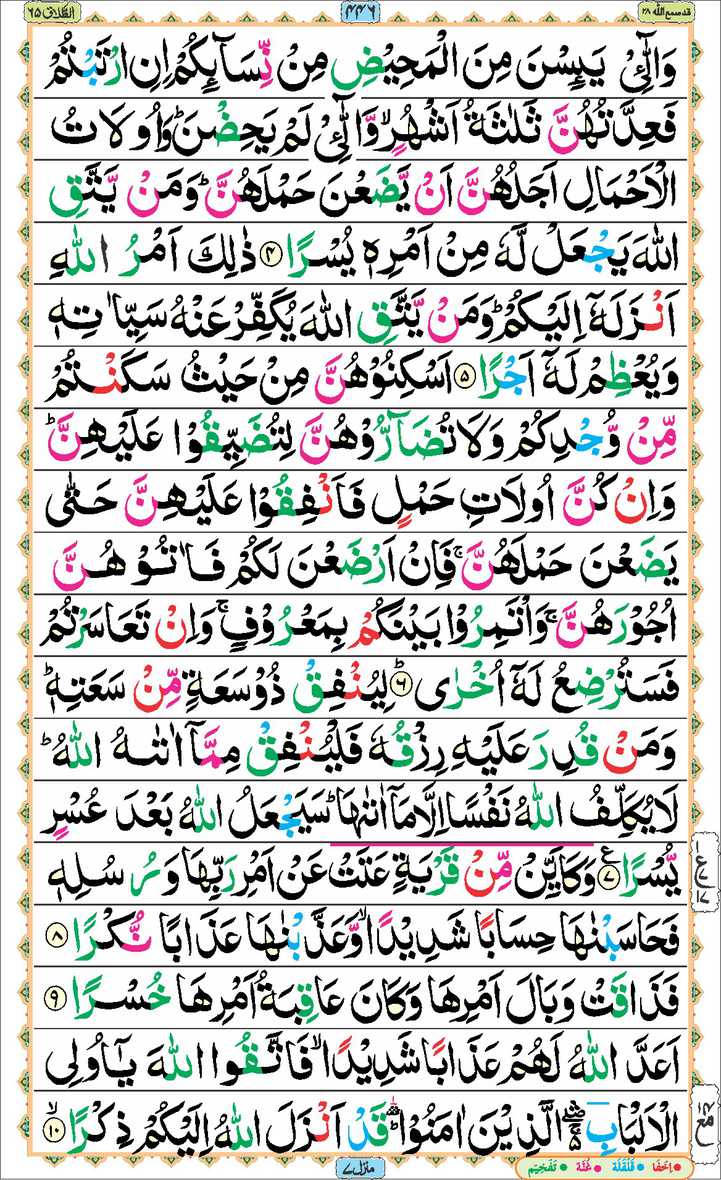 قد سمع الله ٢٨ ٤٤٦ الطلاق ٦٥
وَالّٰٓـِٔیۡ یَئِسۡنَ مِنَ الۡمَحِیۡضِ مِنۡ نِّسَآئِكُمۡ اِنِ ارۡتَبۡتُمۡ
فَعِدَّتُهُنَّ ثَلٰثَةُ اَشۡهُرٍۙ وَّالّٰٓـِٔیۡ لَمۡ یَحِضۡنَؕ وَاُولَاتُ
الۡاَحۡمَالِ اَجَلُهُنَّ اَنۡ یَّضَعۡنَ حَمۡلَهُنَّؕ وَمَنۡ یَّتَّقِ
اللّٰهَ یَجۡعَلۡ لَّهٗ مِنۡ اَمۡرِهٖ یُسۡرًا ۴ ذٰلِكَ اَمۡرُ اللّٰهِ
اَنۡزَلَهٗۤ اِلَیۡكُمۡؕ وَمَنۡ یَّتَّقِ اللّٰهَ یُكَفِّرۡ عَنۡهُ سَیِّاٰتِهٖ
وَیُعۡظِمۡ لَهٗۤ اَجۡرًا ۵ اَسۡكِنُوۡهُنَّ مِنۡ حَیۡثُ سَكَنۡتُمۡ
مِّنۡ وُّجۡدِكُمۡ وَلَا تُضَآرُّوۡهُنَّ لِتُضَیِّقُوۡا عَلَیۡهِنَّؕ
وَاِنۡ كُنَّ اُولَاتِ حَمۡلٍ فَاَنۡفِقُوۡا عَلَیۡهِنَّ حَتّٰی
یَضَعۡنَ حَمۡلَهُنَّۚ فَاِنۡ اَرۡضَعۡنَ لَكُمۡ فَاٰتُوۡهُنَّ
اُجُوۡرَهُنَّۚ وَاۡتَمِرُوۡا بَیۡنَكُمۡ بِمَعۡرُوۡفٍۚ وَاِنۡ تَعَاسَرۡتُمۡ
فَسَتُرۡضِعُ لَهٗۤ اُخۡرٰیؕ ۶ لِیُنۡفِقۡ ذُوۡسَعَةٍ مِّنۡ سَعَتِهٖؕ
وَمَنۡ قُدِرَ عَلَیۡهِ رِزۡقُهٗ فَلۡیُنۡفِقۡ مِمَّاۤ اٰتٰىهُ اللّٰهُؕ
لَا یُكَلِّفُ اللّٰهُ نَفۡسًا اِلَّا مَاۤ اٰتٰىهَاؕ سَیَجۡعَلُ اللّٰهُ بَعۡدَ عُسۡرٍ
یُّسۡرًا ۷ ع وَكَاَیِّنۡ مِّنۡ قَرۡیَةٍ عَتَتۡ عَنۡ اَمۡرِ رَبِّهَا وَرُسُلِهٖ
فَحَاسَبۡنٰهَا حِسَابًا شَدِیۡدًاۙ وَّعَذَّبۡنٰهَا عَذَابًا نُّكۡرًا ۸
فَذَاقَتۡ وَبَالَ اَمۡرِهَا وَكَانَ عَاقِبَةُ اَمۡرِهَا خُسۡرًا ۹
اَعَدَّ اللّٰهُ لَهُمۡ عَذَابًا شَدِیۡدًاۙ فَاتَّقُوا اللّٰهَ یٰۤاُولِی
الۡاَلۡبَابِ الَّذِیۡنَ اٰمَنُوۡاؕ قَدۡ اَنۡزَلَ اللّٰهُ اِلَیۡكُمۡ ذِكۡرًاۙ ۱۰
منزل ۷
اِخفَا قَلقَلَة غُنَّة تَفخِیم